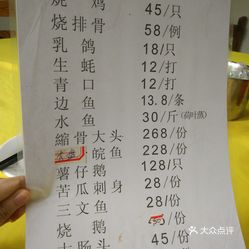 烧鸡 45/只
烧排骨 58/例
乳鸽 18/只
生蚝 12/打
青口 12/打
边鱼 13.8/条
水鱼 30/斤(荷叶蒸)
縮骨大头 268/份
皖鱼 228/份
薯仔鹅 128/只
苦瓜刺身 28/份
三文鱼 28/份
烧鹅 /份
大肠头 45/份
大众点评